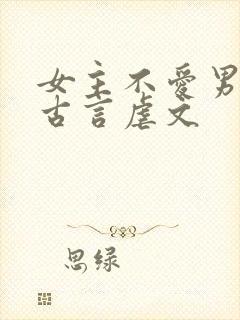 女主不爱男
古言虐文
思绿